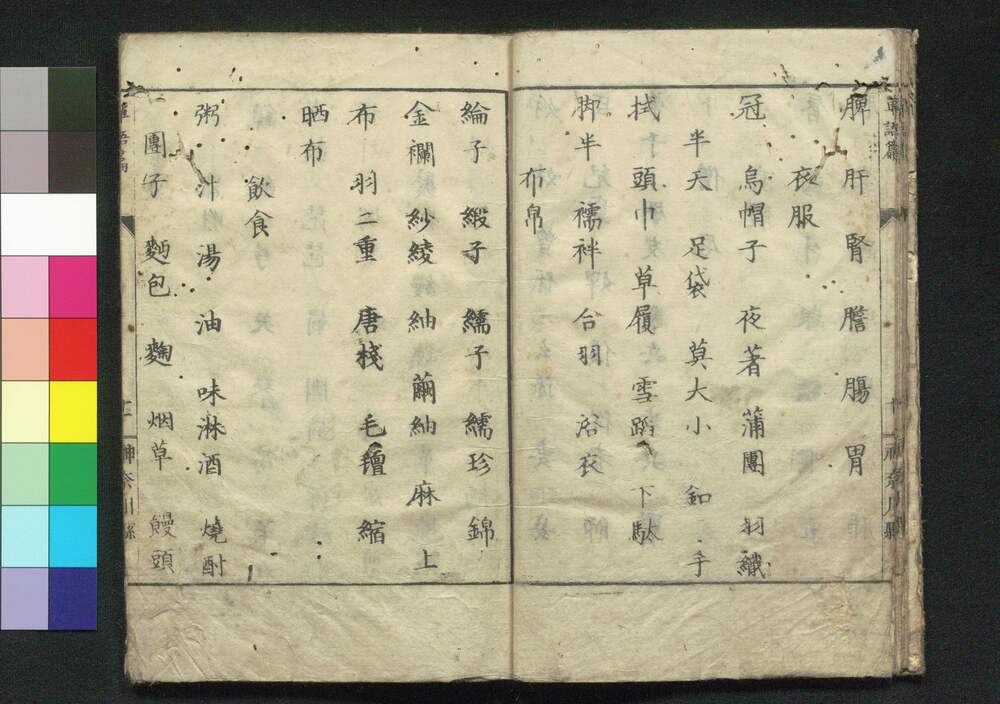 單語篇 十 神奈川縣
脾 肝 腎 膽 腸 胃
衣服
冠 烏帽子 夜著 蒲團 羽織
半天 足袋 莫大小 釦 手
拭 頭巾 草履 雪踏 下駄
脚半 襦袢 合羽 浴衣
布帛
綸子 緞子 繻子 繻珍 錦
金襴 紗綾 紬 繭紬 麻 上
布 羽二重 唐棧 毛繒 縮
晒布
飲食
粥 汁 湯 油 味淋酒 燒酎
團子 麵包 麴 烟草 饅頭
單語篇 十一 神奈川縣